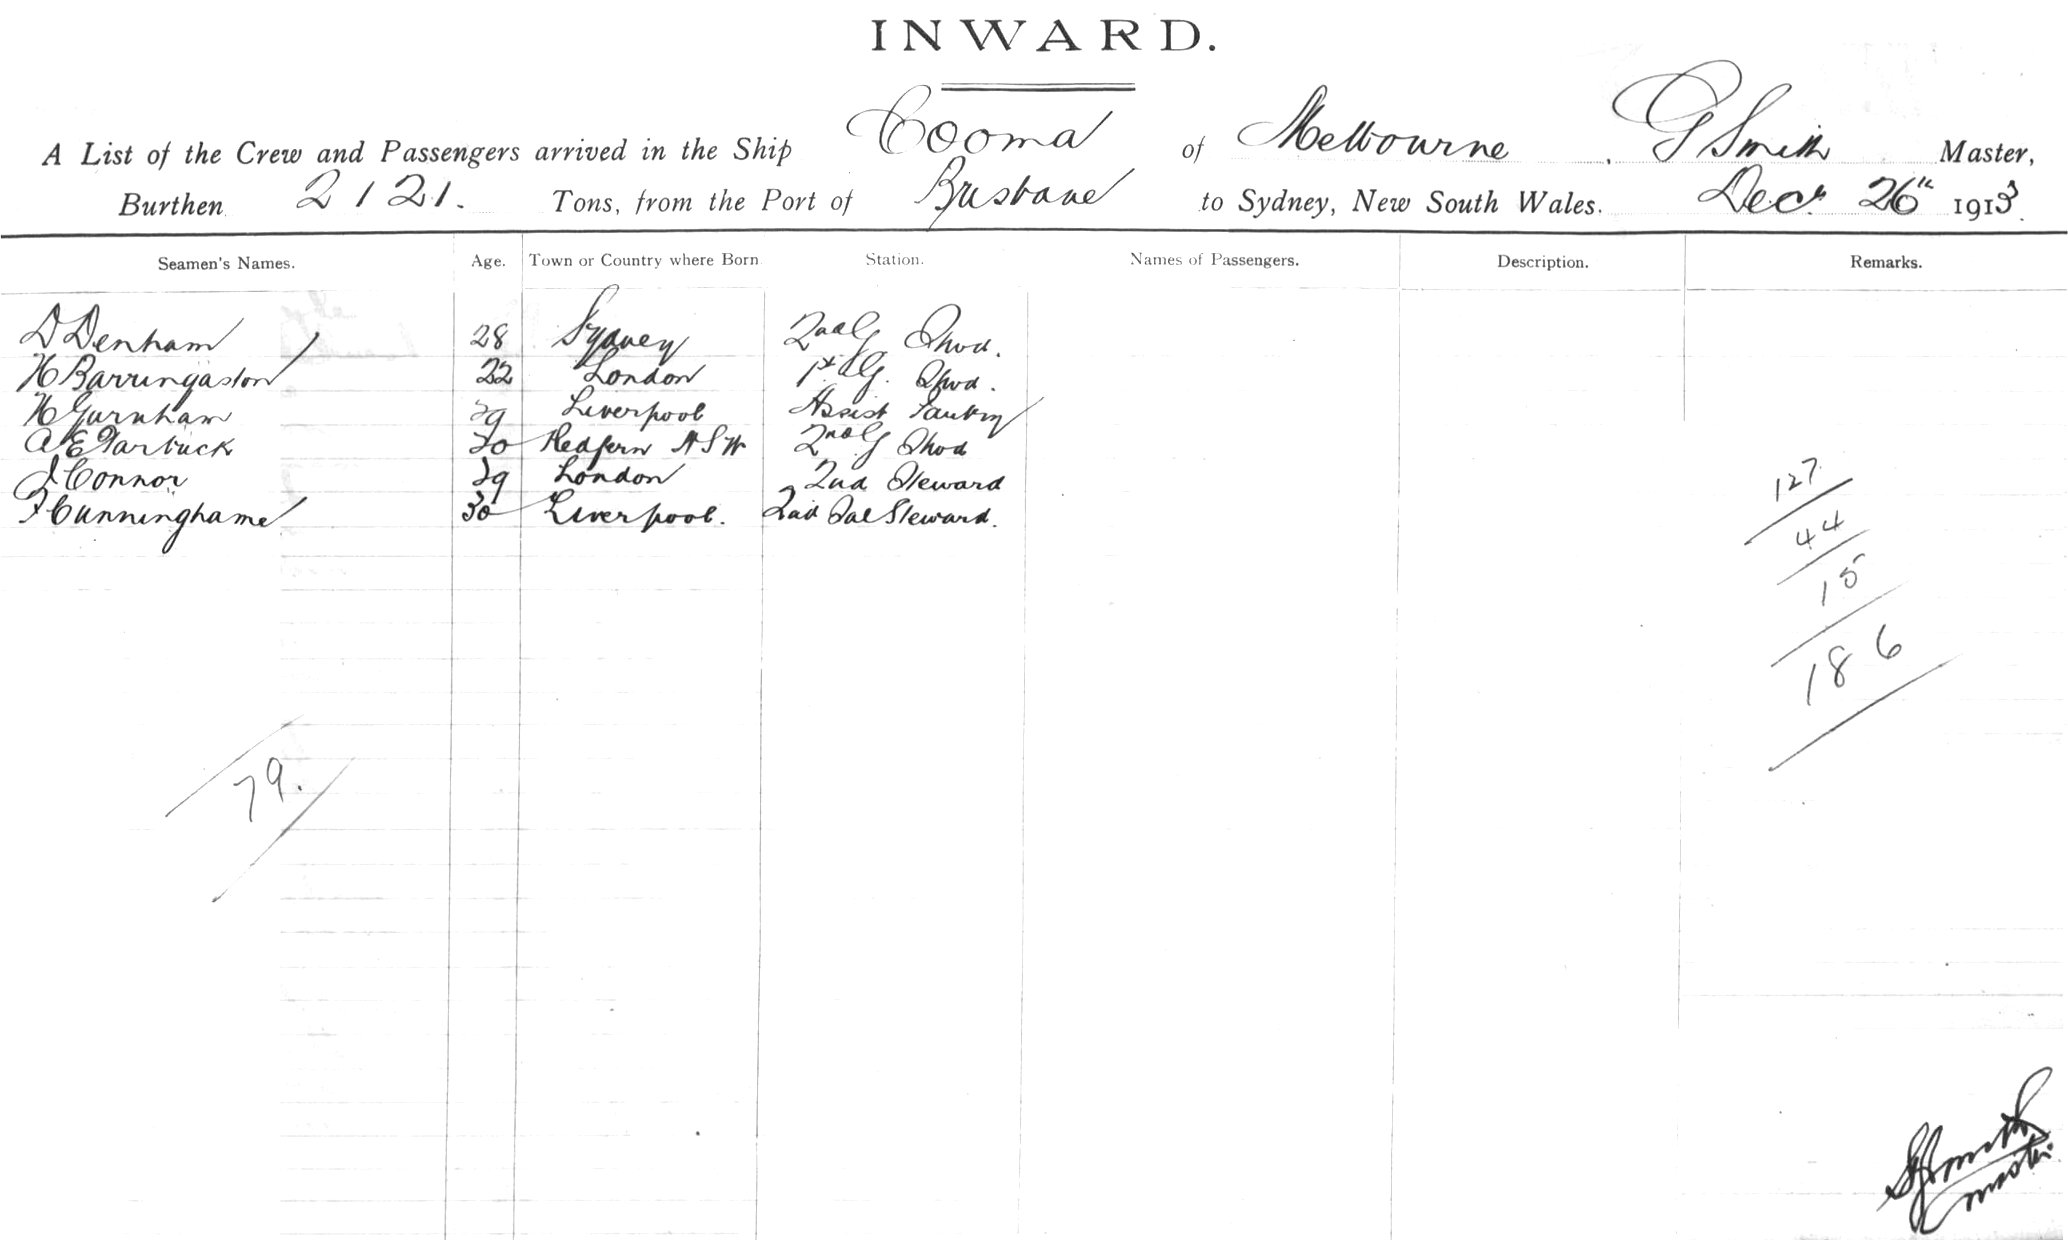 INWARD.
A List of the Crew and Passengers arrived in the Ship Cooma of Melbourne, G Smith Master,
Burthen 2121. Tons, from the Port of Brisbane to Sydney, New South Wales. Decr 26th 1913.
Seamen's Names. Age. Town or Country where Born Station. Names of Passengers. Description. Remarks.
D Denham 28 Sydney 2nd
H Barringaston 22 London 1st
H Gurnham 29 Liverpool Assist Pantry
A E Tarbuck 20 Redfern N S W 2nd
J Connor 29 London 2nd Steward
F Cunninghame 30 Liverpool. 2nd Sal Steward.
127
44
15
186
79.
G Smith
master